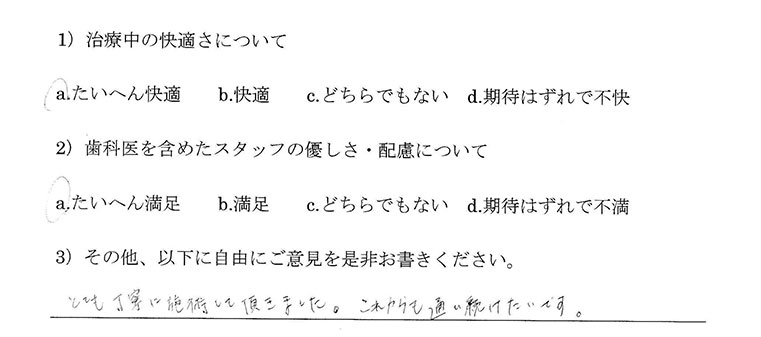 1）治療中の快適さについて
a.たいへん快適　b.快適　c.どちらでもない　d.期待はずれで不快
2）歯科医を含めたスタッフの優しさ・配慮について
a.たいへん満足　b.満足　c.どちらでもない　d.期待はずれで不満
3）その他、以下に自由にご意見を是非お書きください。
とても丁寧に施術して頂きました。これからも通い続けたいです。